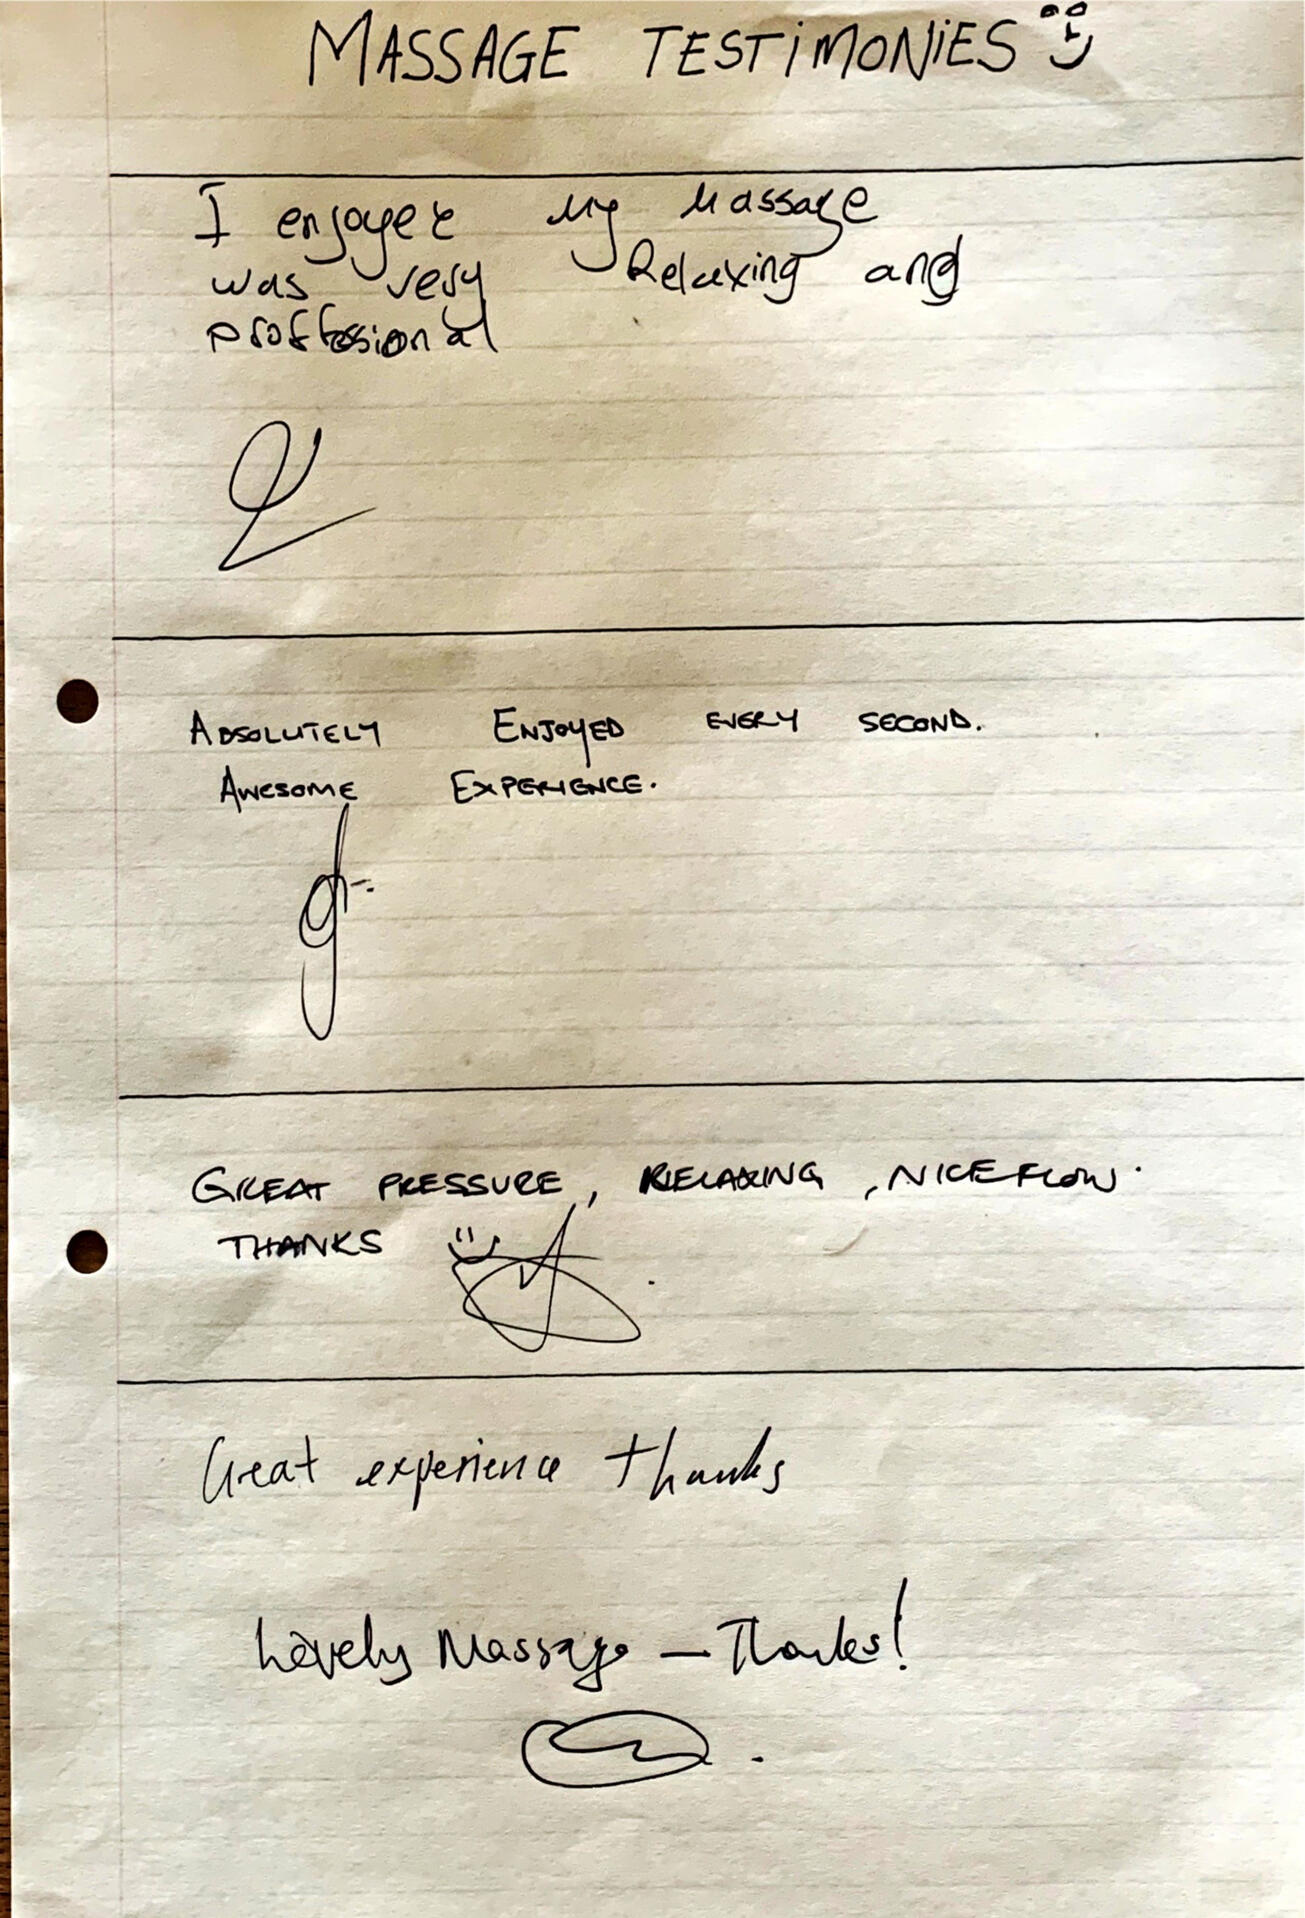 MASSAGE TESTIMONIES
I enjoyed my Massage
was very Relaxing and
proffessional
ABSOLUTELY ENJOYED EVERY SECOND.
AWESOME EXPERIENCE.
GREAT PRESSURE, RELAXING, NICE FLOW.
THANKS
Great experience thanks
Lovely Massage – Thanks!